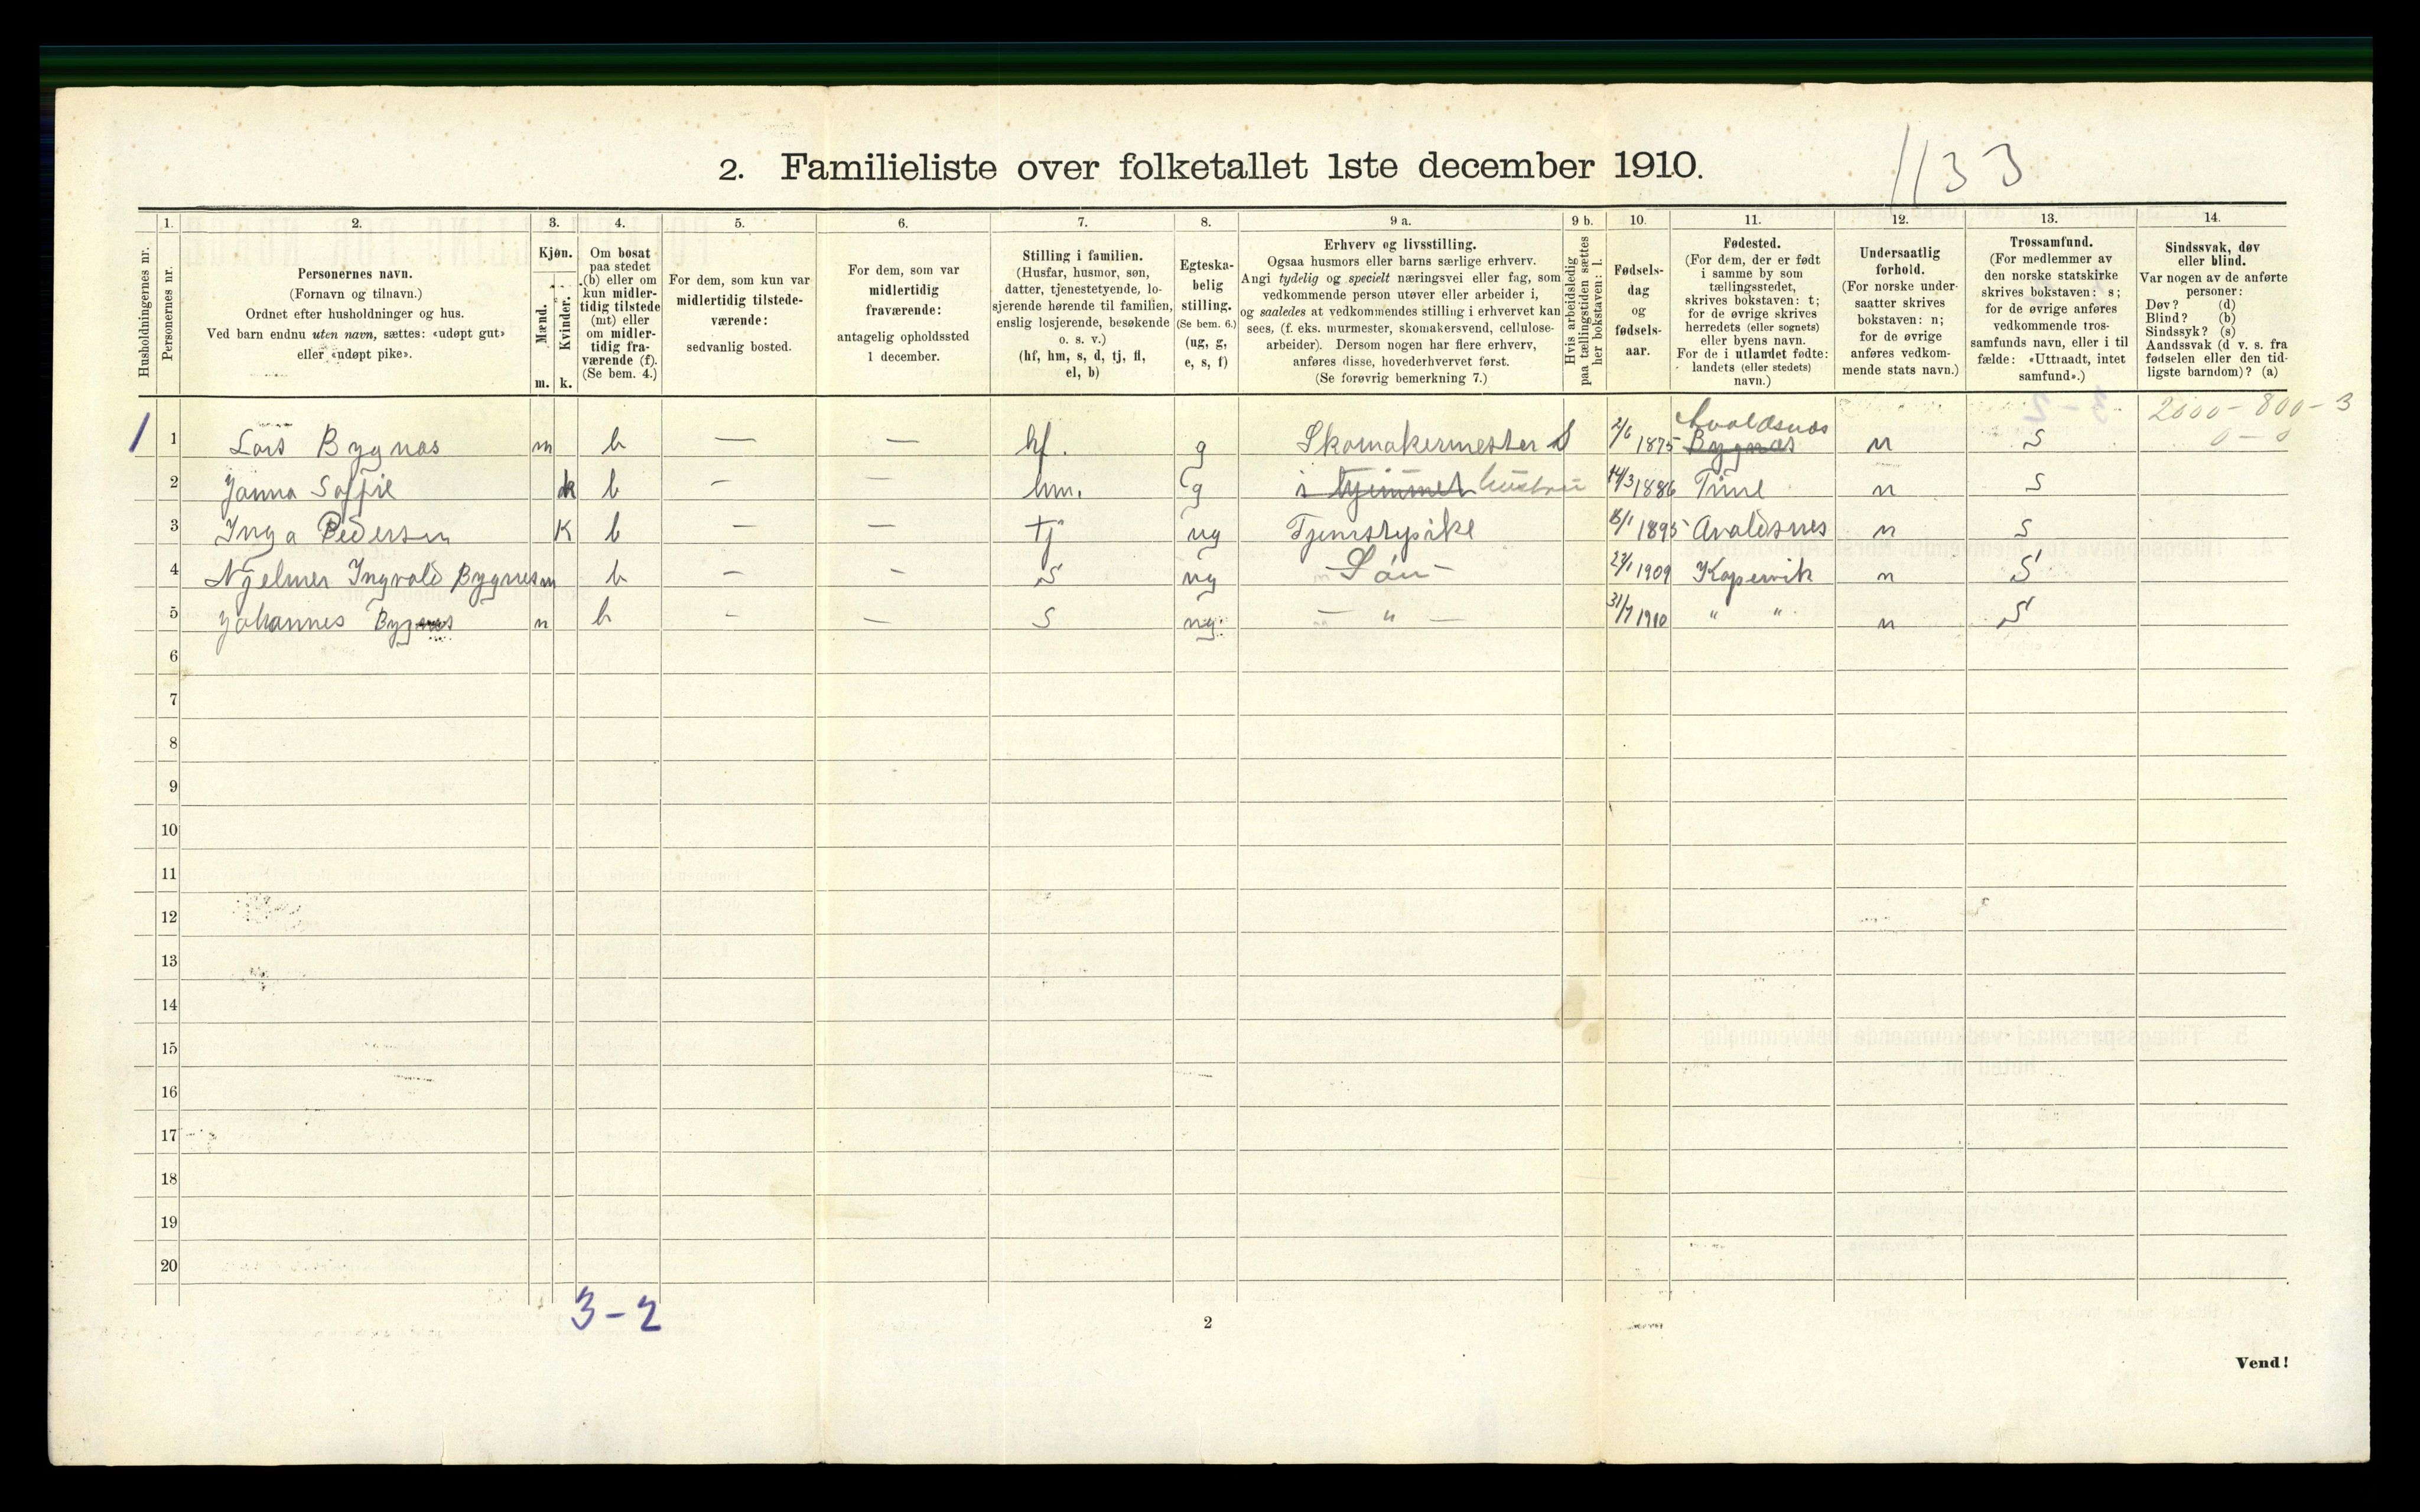 2. Familieliste over folketallet 1ste december 1910.
1133
Husholdningernes nr.
1.
Personernes nr.
2.
Personernes navn.
(Fornavn og tilnavn.)
Ordnet efter husholdninger og hus.
Ved barn endnu uten navn, sættes: «udøpt gut»
eller «udøpt pike».
3.
Kjøn.
Mænd.
Kvinder.
m. k.
4.
Om bosat
paa stedet
(b) eller om
kun midler-
tidig tilstede
(mt) eller
om midler-
tidig fra-
værende (f).
(Se bem. 4.)
5.
For dem, som kun var
midlertidig tilstede-
værende:
sedvanlig bosted.
6.
For dem, som var
midlertidig
fraværende:
antagelig opholdssted
1 december.
7.
Stilling i familien.
(Husfar, husmor, søn,
datter, tjenestetyende, lo-
sjerende hørende til familien,
enslig losjerende, besøkende
o. s. v.)
(hf, hm, s, d, tj, fl,
el, b)
8.
Egteska-
belig
stilling.
(Se bem. 6.)
(ug, g,
e, s, f)
9 a.
Erhverv og livsstilling.
Ogsaa husmors eller barns særlige erhverv.
Angi tydelig og specielt næringsvei eller fag, som
vedkommende person utøver eller arbeider i,
og saaledes at vedkommendes stilling i erhvervet kan
sees, (f. eks. murmester, skomakersvend, cellulose-
arbeider). Dersom nogen har flere erhverv,
anføres disse, hovederhvervet først.
(Se forøvrig bemerkning 7.)
9 b.
Hvis arbeidsledig
paa tællingstiden sættes
her bokstaven: l.
10.
Fødsels-
dag
og
fødsels-
aar.
11.
Fødested.
(For dem, der er født
i samme by som
tællingsstedet,
skrives bokstaven: t;
for de øvrige skrives
herredets (eller sognets)
eller byens navn.
For de i utlandet fødte:
landets (eller stedets)
navn.)
12.
Undersaatlig
forhold.
(For norske under-
saatter skrives
bokstaven: n;
for de øvrige
anføres vedkom-
mende stats navn.)
13.
Trossamfund.
(For medlemmer av
den norske statskirke
skrives bokstaven: s;
for de øvrige anføres
vedkommende tros-
samfunds navn, eller i til
fælde: «Uttraadt, intet
samfund».)
14.
Sindssvak, døv
eller blind.
Var nogen av de anførte
personer:
Døv? (d)
Blind? (b)
Sindssyk? (s)
Aandssvak (d v. s. fra
fødselen eller den tid-
ligste barndom)? (a)
2000 - 800 - 3
0 - 0
Avaldsnes
1 1 Lars Bygnes m b — — hf. g Skomakermester S 2/6 1875 Bygnes n S
2 Janna Soffie k b — — hm. g i hjemmet hustru 14/3 1886 Time n S
3 Inga Pedersen K b — — tj ug Tjenstepike 1895 Avaldsnes n S
4 Hjelmer Ingvald Bygnes m b — — S ug Søn 1909 Kopervik n S
5 Johannes Bygnes m b — — S ug — " — 31/7 1910 " " n S
6
7
8
9
10
11
12
13
14
15
16
17
18
19
20
3 - 2
2
Vend!